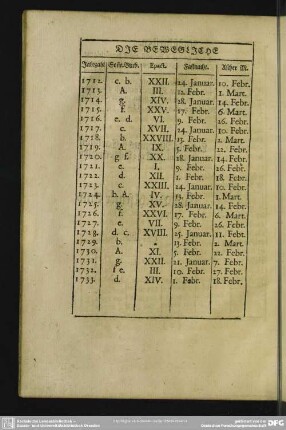 DIE BEWEGLICHE
Jahrzahl. Sonn.Buch. Epact. Fastnacht. Ascher M.
1712. c. b. XXII. 24. Januar. 10. Febr.
1713. A. III. 12. Febr. 1. Mart.
1714. g. XIV. 28. Januar. 14. Febr.
1715. f. XXV. 17. Febr. 6. Mart.
1716. e. d. VI. 9. Febr. 26. Febr.
1717. c. XVII. 24. Januar. 10. Febr.
1718. b. XXVIII. 13. Febr. 2. Mart.
1719. A. IX. 5. Febr. 22. Febr.
1720. g f. XX. 28. Januar. 14. Febr.
1721. e. I. 9. Febr. 26. Febr.
1722. d. XII. 1. Febr. 18. Febr.
1723. c. XXIII. 24. Januar. 10. Febr.
1724. b. A. IV. 13. Febr. 1. Mart.
1725. g. XV. 28. Januar. 14. Febr.
1726. f. XXVI. 17. Febr. 6. Mart.
1727. e. VII. 9. Febr. 26. Febr.
1728. d. c. XVIII. 25. Januar. 11. Febr.
1729. b. * 13. Febr. 2. Mart.
1730. A. XI. 5. Febr. 22. Febr.
1731. g. XXII. 21. Januar. 7. Febr.
1732. f e. III. 10. Febr. 27. Febr.
1733. d. XIV. 1. Febr. 18. Febr.
DFG